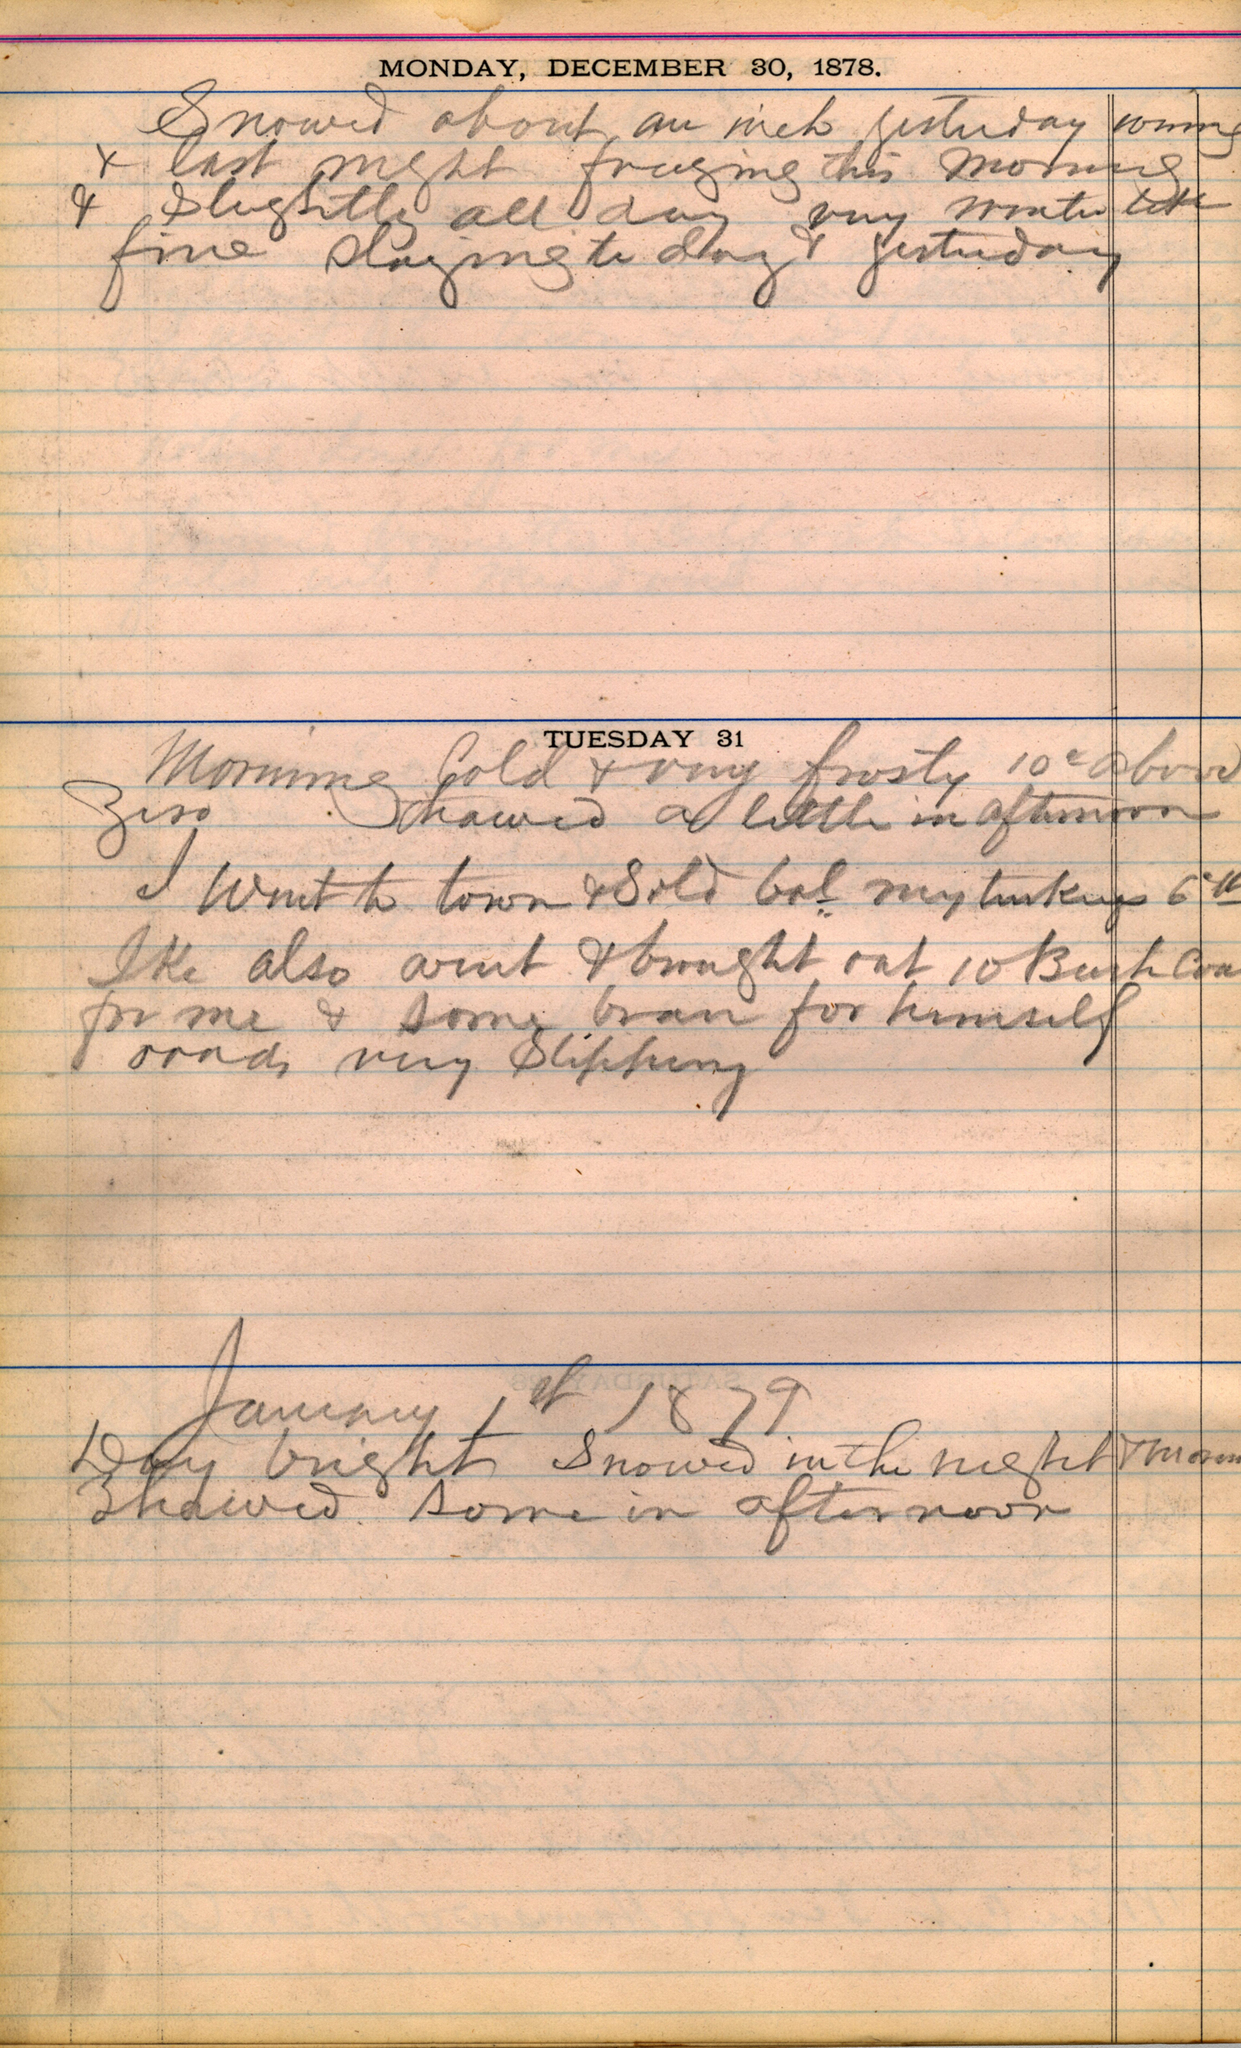 MONDAY, DECEMBER 30, 1878.
Snowed about an inch yesterday
& last night freezing this morning
& Slightly all day very winter like
fine Slaying to day & yesterday
TUESDAY 31
Morning Cold & very frosty 10° above
Zero Thawed a little in afternoon
I Went to town & Sold bal. my turkeys 6c
Ike also went & brought out 10 Bush
for me & some bran for himself
roads very Slippery
January 1st 1879
Day bright Snowed in the night &
Thawed some in afternoon